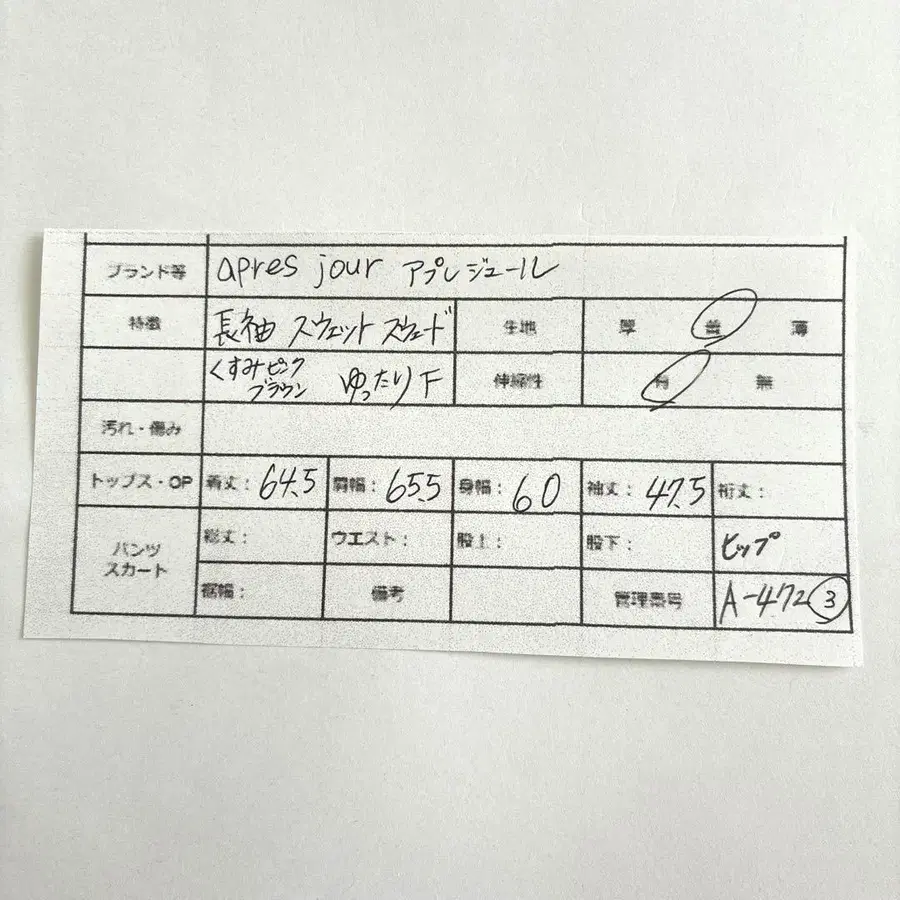 ブランド等 apres jour アプレジュール
特徴 長袖 スウェット スウェード 生地 厚 普 薄
くすみピンク ブラウン ゆったり F 伸縮性 有 無
汚れ・傷み
トップス・OP 着丈: 64.5 肩幅: 65.5 身幅: 60 袖丈: 47.5 裄丈:
パンツ スカート 総丈: ウエスト: 股上: 股下: ヒップ
裾幅: 備考 管理番号 A-472 ③